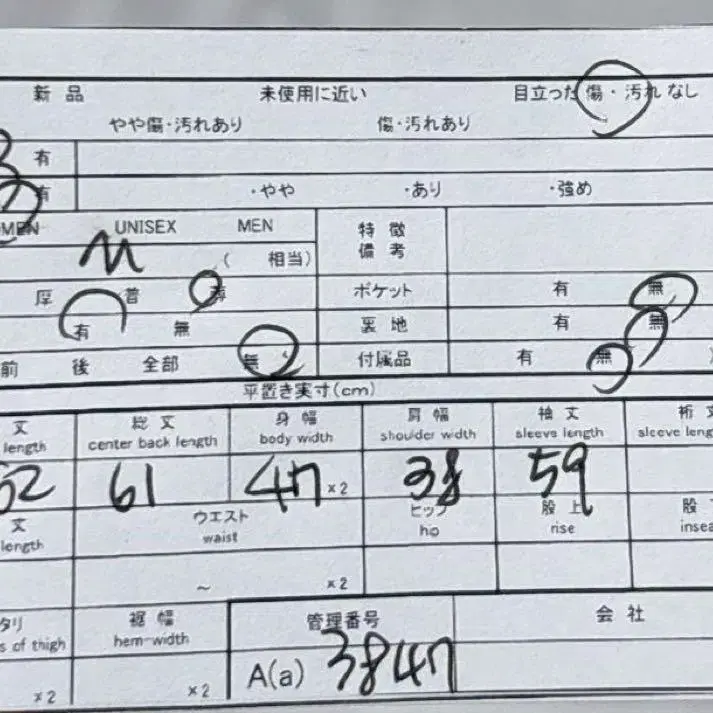 新品 未使用に近い 目立った傷・汚れなし
やや傷・汚れあり 傷・汚れあり
有
有 ・やや ・あり ・強め
MEN UNISEX MEN 特徴
M ( 相当) 備考
厚 普 薄 ポケット 有 無
有 無 裏地 有 無
前 後 全部 無 付属品 有 無 )
平置き実寸(cm)
丈 総丈 身幅 肩幅 袖丈 裄丈
length center back length body width shoulder width sleeve length sleeve leng
62 61 47 ×2 38 59
丈 ウエスト ヒップ 股上 股
length waist hip rise insea
~ ×2
タリ 裾幅 管理番号 会社
s of thigh hem-width
×2 ×2 A(a) 3847